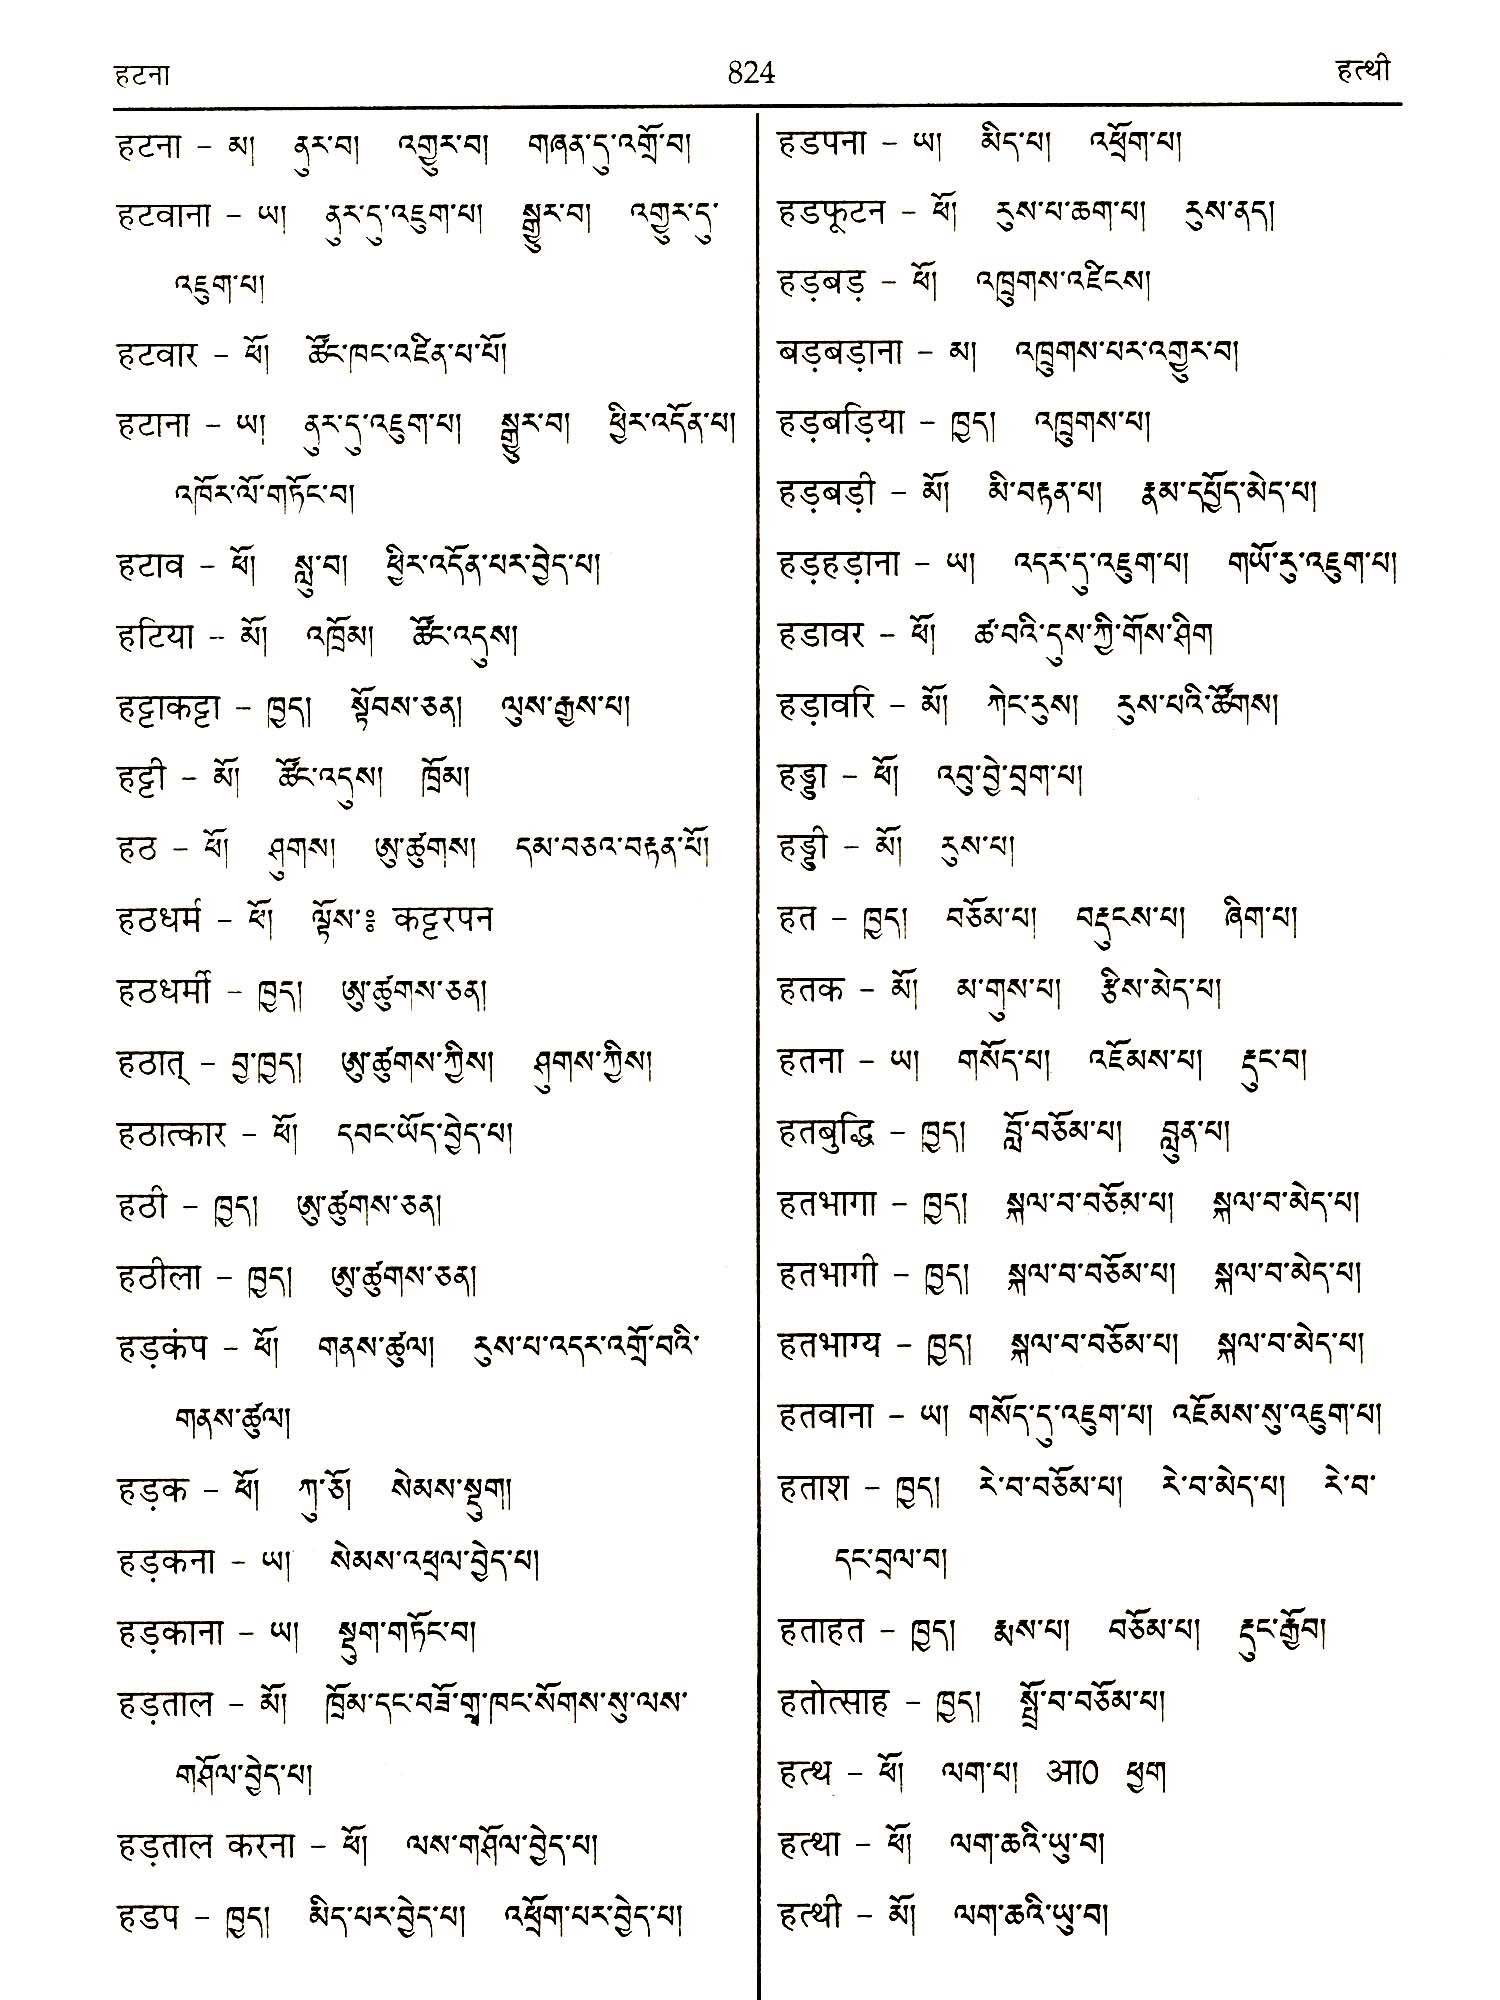 हटना 824 हत्थी
हटना – མ། ནུར་བ། འགྱུར་བ། གཞན་དུ་འགྲོ་བ།
हटवाना – ཡ། ནུར་དུ་འཇུག་པ། སྒྱུར་བ། འགྱུར་དུ་
འཇུག་པ།
हटवार – ཕོ། ཚོང་ཁང་འཛིན་པ་པོ།
हटाना – ཡ། ནུར་དུ་འཇུག་པ། སྒྱུར་བ། ཕྱིར་འདོན་པ།
འཁོར་ལོ་གཏོང་བ།
हटाव – ཕོ། སླུ་བ། ཕྱིར་འདོན་པར་བྱེད་པ།
हटिया – མོ། འཁྲོམ། ཚོང་འདུས།
हट्टाकट्टा – ཁྱད། སྟོབས་ཅན། ལུས་རྒྱས་པ།
हट्टी – མོ། ཚོང་འདུས། ཁྲོམ།
हठ – ཕོ། ཤུགས། ཨུ་ཚུགས། དམ་བཅའ་བརྟན་པོ།
हठधर्म – ཕོ། ལྟོས་༔ कट्टरपन
हठधर्मी – ཁྱད། ཨུ་ཚུགས་ཅན།
हठात् – བྱ་ཁྱད། ཨུ་ཚུགས་ཀྱིས། ཤུགས་ཀྱིས།
हठात्कार – ཕོ། དབང་ཡོད་བྱེད་པ།
हठी – ཁྱད། ཨུ་ཚུགས་ཅན།
हठीला – ཁྱད། ཨུ་ཚུགས་ཅན།
हड़कंप – ཕོ། གནས་ཚུལ། རུས་པ་འདར་འགྲོ་བའི་
གནས་ཚུལ།
हड़क – ཕོ། ཀུ་ཅོ། སེམས་སྡུག།
हड़कना – ཡ། སེམས་འཕྲལ་བྱེད་པ།
हड़काना – ཡ། སྡུག་གཏོང་བ།
हड़ताल – མོ། ཁྲོམ་དང་བཟོ་གྲྭ་ཁང་སོགས་སུ་ལས་
གཤོལ་བྱེད་པ།
हड़ताल करना – ཕོ། ལས་གཤོལ་བྱེད་པ།
हडप – ཁྱད། མིད་པར་བྱེད་པ། འཕྲོག་པར་བྱེད་པ།
हडपना – ཡ། མིད་པ། འཕྲོག་པ།
हडफूटन – ཕོ། རུས་པ་ཆག་པ། རུས་ནད།
हड़बड़ – ཕོ། འཁྲུགས་འཛིངས།
बड़बड़ाना – མ། འཁྲུགས་པར་འགྱུར་བ།
हड़बड़िया – ཁྱད། འཁྲུགས་པ།
हड़बड़ी – མོ། མི་བརྟན་པ། རྣམ་དཔྱོད་མེད་པ།
हड़हड़ाना – ཡ། འདར་དུ་འཇུག་པ། གཡོ་རུ་འཇུག་པ།
हडावर – ཕོ། ཚ་བའི་དུས་ཀྱི་གོས་ཤིག
हड़ावरि – མོ། ཀེང་རུས། རུས་པའི་ཚོགས།
हड्डा – ཕོ། འབུ་བྱེ་བྲག་པ།
हड्डी – མོ། རུས་པ།
हत – ཁྱད། བཅོམ་པ། བརྡུངས་པ། ཞིག་པ།
हतक – མོ། མ་གུས་པ། རྩིས་མེད་པ།
हतना – ཡ། གསོད་པ། འཇོམས་པ། རྡུང་བ།
हतबुद्धि – ཁྱད། བློ་བཅོམ་པ། བླུན་པ།
हतभागा – ཁྱད། སྐལ་བ་བཅོམ་པ། སྐལ་བ་མེད་པ།
हतभागी – ཁྱད། སྐལ་བ་བཅོམ་པ། སྐལ་བ་མེད་པ།
हतभाग्य – ཁྱད། སྐལ་བ་བཅོམ་པ། སྐལ་བ་མེད་པ།
हतवाना – ཡ། གསོད་དུ་འཇུག་པ། འཇོམས་སུ་འཇུག་པ།
हताश – ཁྱད། རེ་བ་བཅོམ་པ། རེ་བ་མེད་པ། རེ་བ་
དང་བྲལ་བ།
हताहत – ཁྱད། རྨས་པ། བཅོམ་པ། རྡུང་རྒྱོབ།
हतोत्साह – ཁྱད། སྤྲོ་བ་བཅོམ་པ།
हत्थ – ཕོ། ལག་པ། आ0 ཕྱག
हत्था – ཕོ། ལག་ཆའི་ཡུ་བ།
हत्थी – མོ། ལག་ཆའི་ཡུ་བ།